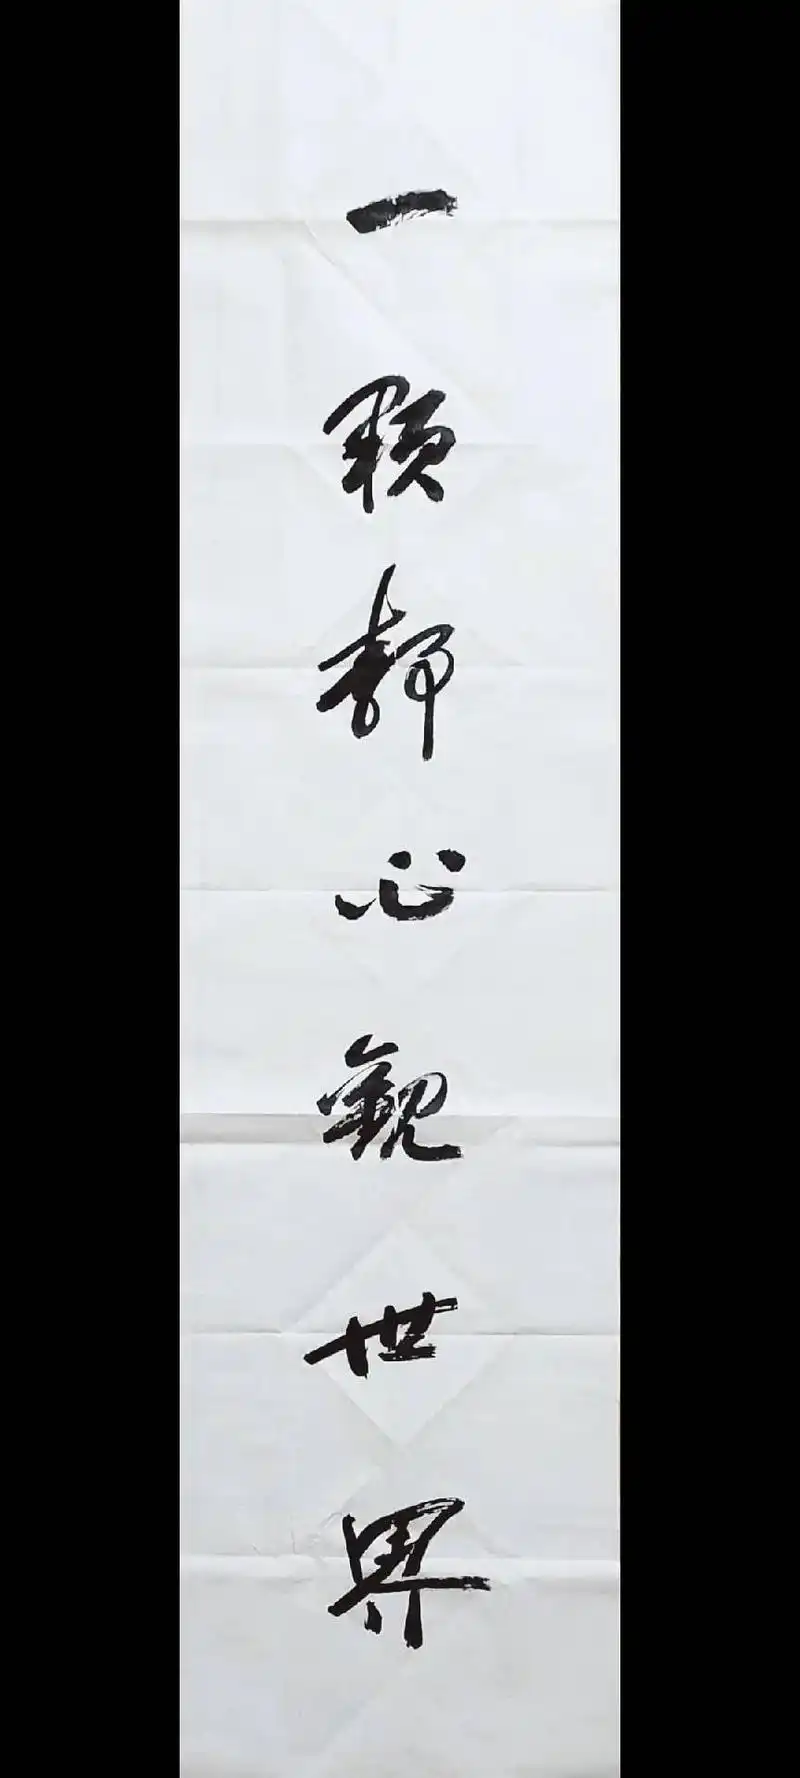 一顆静心觀世界